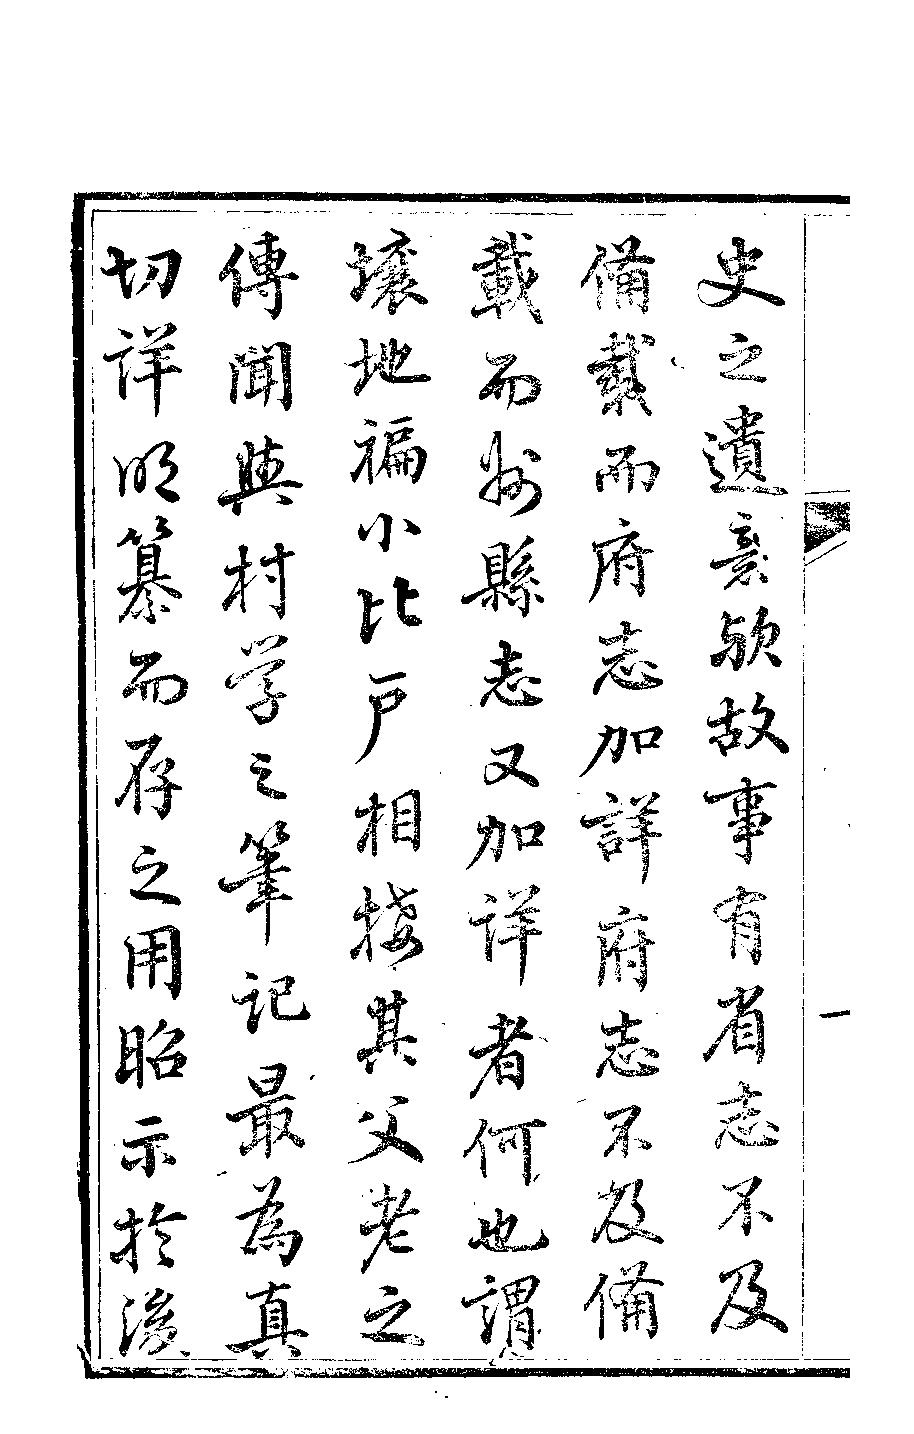 史之遺意歟故事有省志不及
備載而府志加詳府志不及備
載而州縣志又加詳者何也謂
壤地褊小比戶相接其父老之
傳聞與村学之筆記最為真
切詳明纂而存之用昭示於後